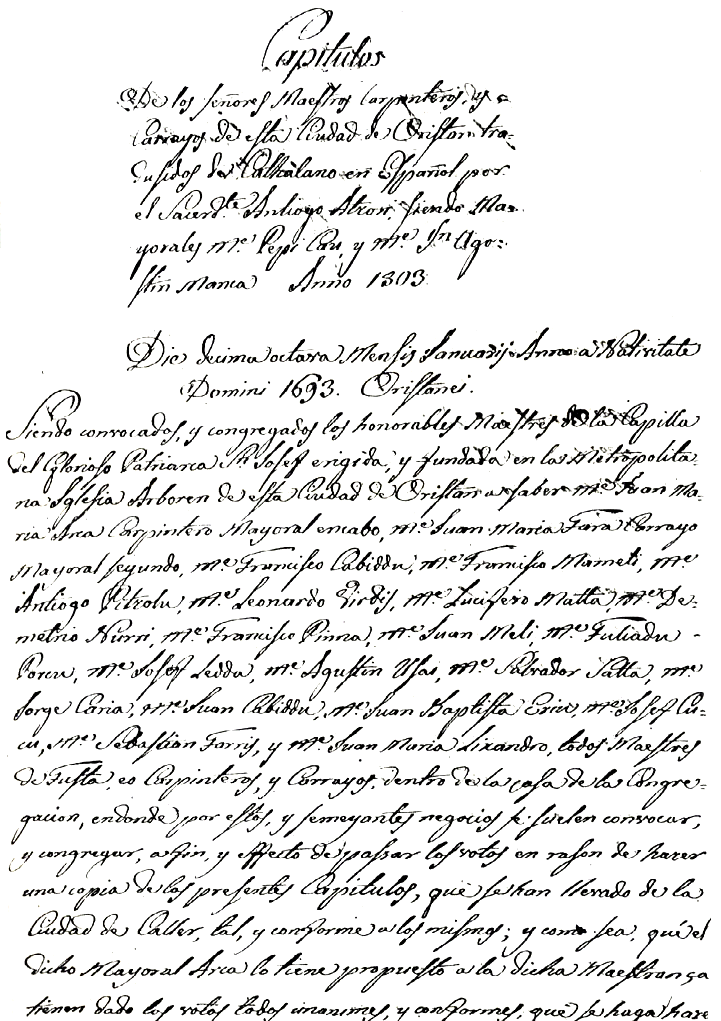 Capitulos
De los señores Maestros Carpinteros, y
Carrayos de esta Ciudad de Oristan tra-
dusidos del Cathalano en Español por
el Sacerd.te Antiogo Atzori, siendo Ma-
yorales M.e Pepi Cau, y M.e Sn Ago-
stin Manca Anno 1803
Die decima octava Mensis Januarij Anno a Nativitate
Domini 1693. Oristanei.
Siendo convocados, y congregados los honorables Maestres de la Capilla
del Glorioso Patriarca Sn Josef erigida, y fundada en las Metropolita-
na Iglesia Arboren de esta Ciudad de Oristan a saber M.e Juan Ma-
ria Arca Carpintero Mayoral encabo, M.e Juan Maria Fara Carrayo
Mayoral segundo, M.e Francisco Cabiddu, M.e Francisco Mameli, M.e
Antiogo Pitzolu, M.e Leonardo Virdis, M.e Lucifero Matta, M.e De-
metrio Nurri, M.e Francisco Pinna, M.e Juan Meli, M.e
Porcu, M.e Josef Leddu, M.e Agustin Usai, M.e Salvador Satta, M.e
Jorge Caria, M.e Juan Cabiddu, M.e Juan Baptista Eriu, M.e Josef Cu-
cu, M.e Sebastian Farris, y M.e Juan Maria Lixandro, todos Maestres
de Fusta, eo Carpinteros, y Carrayos, dentro de la casa de la Congre-
gacion, endonde por estos, y semeyantes negocios se suelen convocar,
y congregar, a fin, y effecto de passar los votos en rason de hazer
una copia de los presentes Capitulos, que se han llevado de la
Ciudad de Caller, tal, y conforme a los mismos; y como sea, qué el
dicho Mayoral Arca lo tiene propuesto a la dicha Maestrança
tienen dado los votos todos unanimes, y conformes, que se haga haze